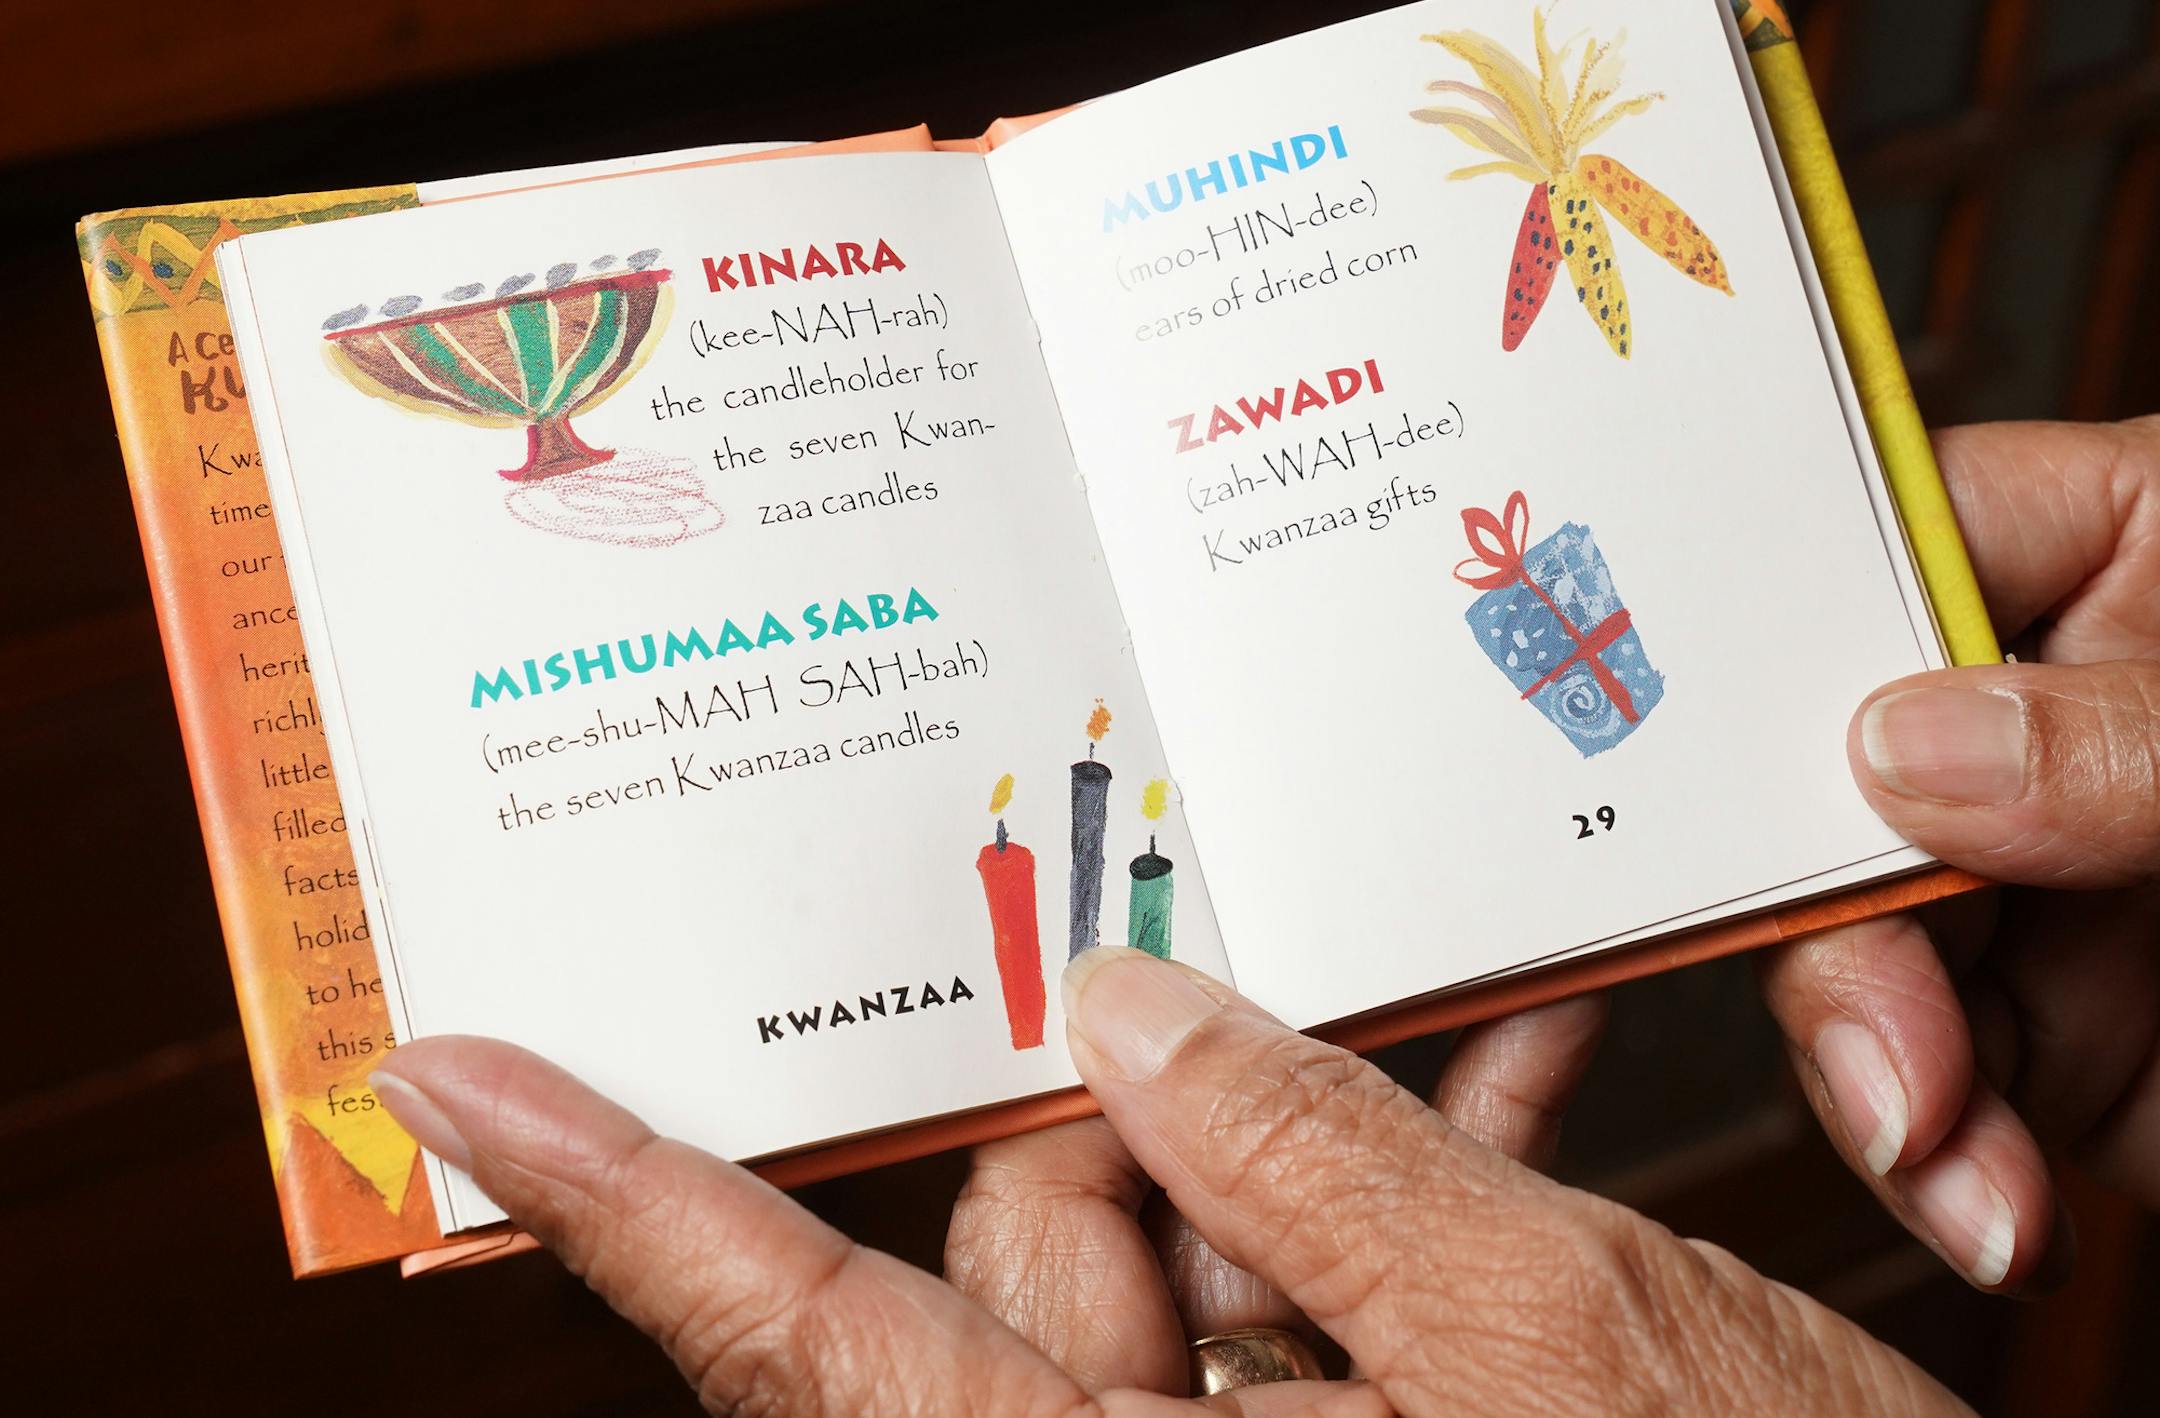 A Ce
Ku
Kwa
time
our
ance
herit
richl
little
filled
facts
holid
to he
this s
fes
KINARA
(kee-NAH-rah)
the candleholder for
the seven Kwan-
zaa candles
MISHUMAA SABA
(mee-shu-MAH SAH-bah)
the seven Kwanzaa candles
KWANZAA
MUHINDI
(moo-HIN-dee)
ears of dried corn
ZAWADI
(zah-WAH-dee)
Kwanzaa gifts
29